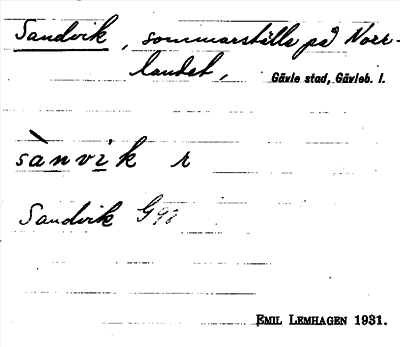 Sandvik, sommarställe på Norr-
landet, Gävle stad, Gävleb. l.
sànvi̲k r
Sandvik G98
EMIL LEMHAGEN 1931.